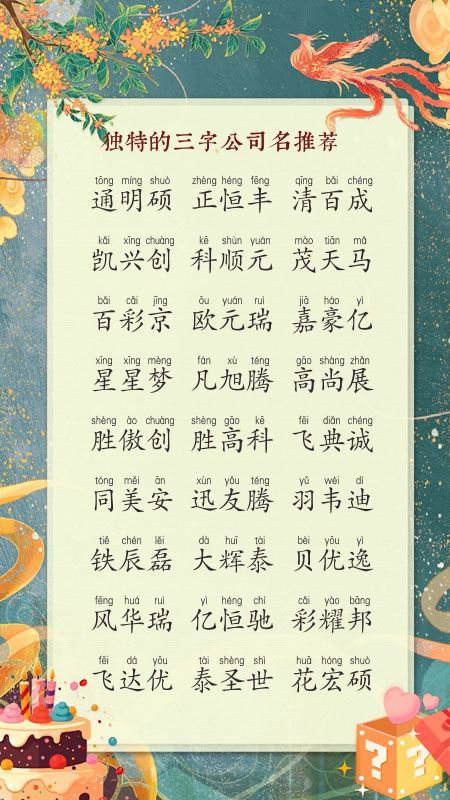 独特的三字公司名推荐
tōng míng shuò zhèng héng fēng qīng bǎi chéng
通明硕 正恒丰 清百成
kǎi xīng chuàng kē shùn yuán mào tiān mǎ
凯兴创 科顺元 茂天马
bǎi cǎi jīng ōu yuán ruì jiā háo yì
百彩京 欧元瑞 嘉豪亿
xīng xīng mèng fán xù téng gāo shàng zhǎn
星星梦 凡旭腾 高尚展
shèng ào chuàng shèng gāo kē fēi diǎn chéng
胜傲创 胜高科 飞典诚
tóng měi ān xùn yǒu téng yǔ wéi dí
同美安 迅友腾 羽韦迪
tiě chén lěi dà huī tài bèi yōu yì
铁辰磊 大辉泰 贝优逸
fēng huá ruì yì héng chí cǎi yào bāng
风华瑞 亿恒驰 彩耀邦
fēi dá yōu tài shèng shì huā hóng shuò
飞达优 泰圣世 花宏硕
? ?